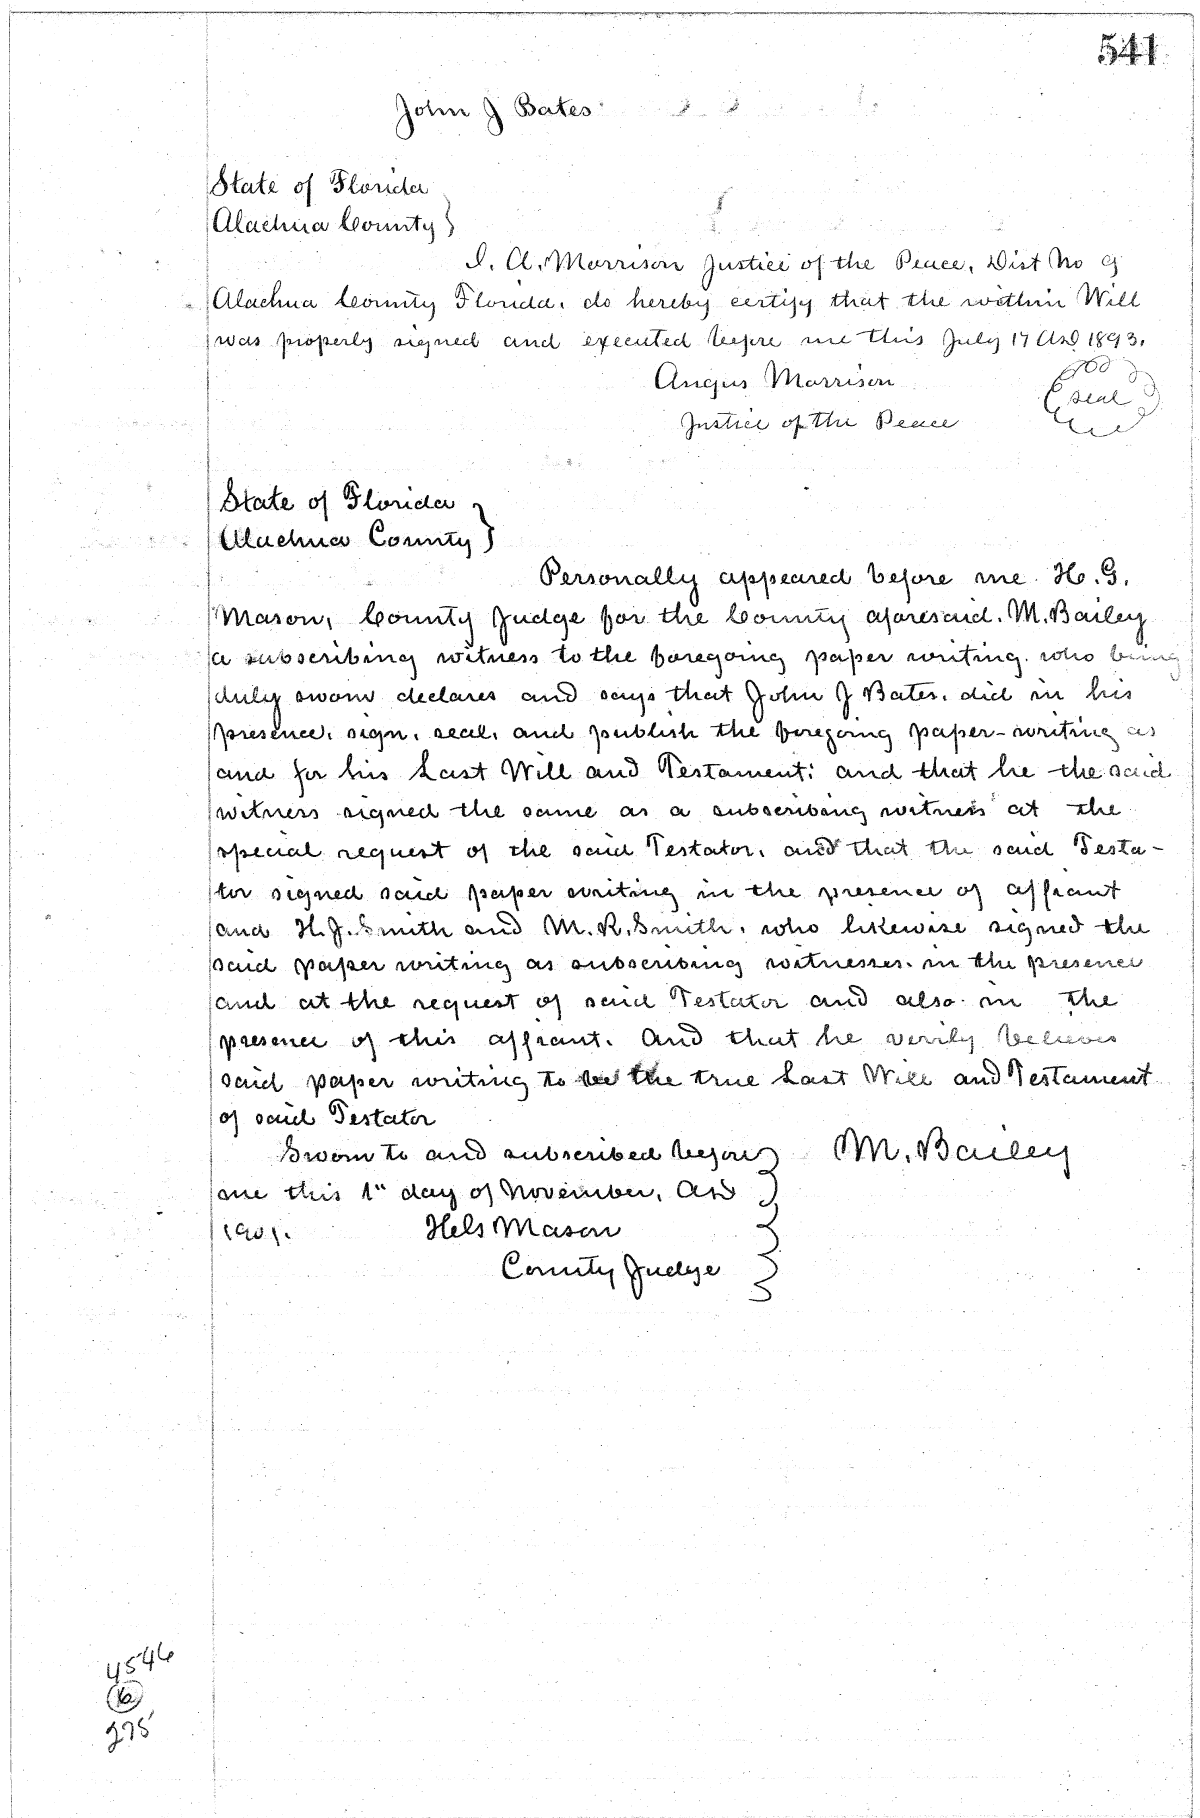 541
John J Bates
State of Florida
Alachua County }
I, A. Morrison Justice of the Peace, Dist No 9
Alachua County Florida, do hereby certify that the within Will
was properly signed and executed before me this July 17 AD 1893.
Angus Morrison
seal
Justice of the Peace
State of Florida
Alachua County }
Personally appeared before me H. G.
Mason, County Judge for the County aforesaid. M. Bailey
a subscribing witness to the foregoing paper writing. who being
duly sworn declares and says that John J Bates, did in his
presence, sign, seal, and publish the foregoing paper-writing as
and for his Last Will and Testament; and that he the said
witness signed the same as a subscribing witness at the
special request of the said Testator, and that the said Testa-
tor signed said paper writing in the presence of affiant
and H. J. Smith and M. R. Smith, who likewise signed the
said paper writing as subscribing witnesses. in the presence
and at the request of said Testator and also in the
presence of this affiant. And that he verily believes
said paper writing to be the true Last Will and Testament
of said Testator
Sworn to and subscribed before } M. Bailey
me this 1" day of November, AD
1901. Mason
County Judge
4546
275